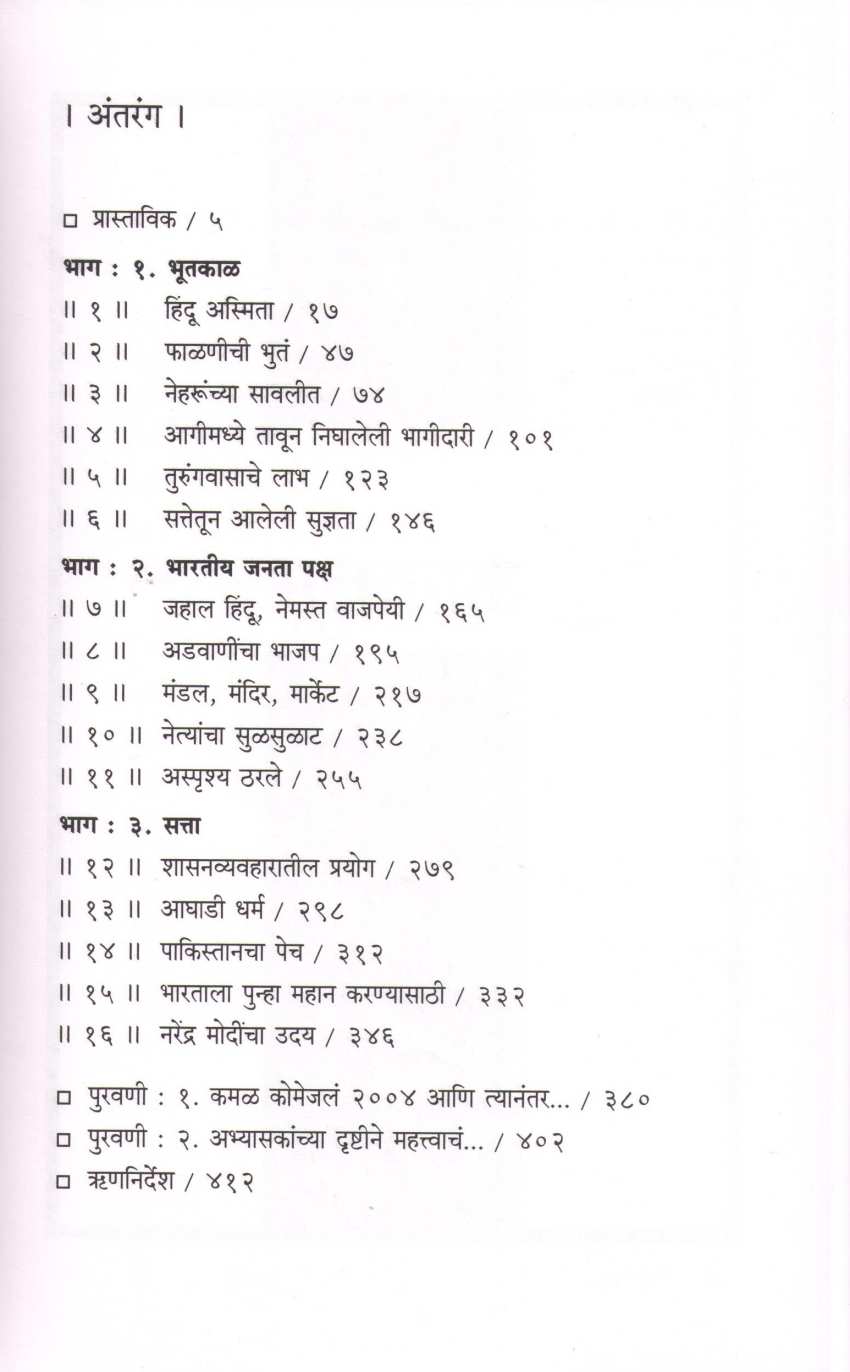 । अंतरंग ।
□ प्रास्ताविक / ५
भाग : १. भूतकाळ
॥ १ ॥ हिंदू अस्मिता / १७
॥ २ ॥ फाळणीची भुतं / ४७
॥ ३ ॥ नेहरूंच्या सावलीत / ७४
॥ ४ ॥ आगीमध्ये तावून निघालेली भागीदारी / १०१
॥ ५ ॥ तुरुंगवासाचे लाभ / १२३
॥ ६ ॥ सत्तेतून आलेली सुज्ञता / १४६
भाग : २. भारतीय जनता पक्ष
॥ ७ ॥ जहाल हिंदू, नेमस्त वाजपेयी / १६५
॥ ८ ॥ अडवाणींचा भाजप / १९५
॥ ९ ॥ मंडल, मंदिर, मार्केट / २१७
॥ १० ॥ नेत्यांचा सुळसुळाट / २३८
॥ ११ ॥ अस्पृश्य ठरले / २५५
भाग : ३. सत्ता
॥ १२ ॥ शासनव्यवहारातील प्रयोग / २७९
॥ १३ ॥ आघाडी धर्म / २९८
॥ १४ ॥ पाकिस्तानचा पेच / ३१२
॥ १५ ॥ भारताला पुन्हा महान करण्यासाठी / ३३२
॥ १६ ॥ नरेंद्र मोदींचा उदय / ३४६
□ पुरवणी : १. कमळ कोमेजलं २००४ आणि त्यानंतर... / ३८०
□ पुरवणी : २. अभ्यासकांच्या दृष्टीने महत्त्वाचं... / ४०२
□ ऋणनिर्देश / ४१२